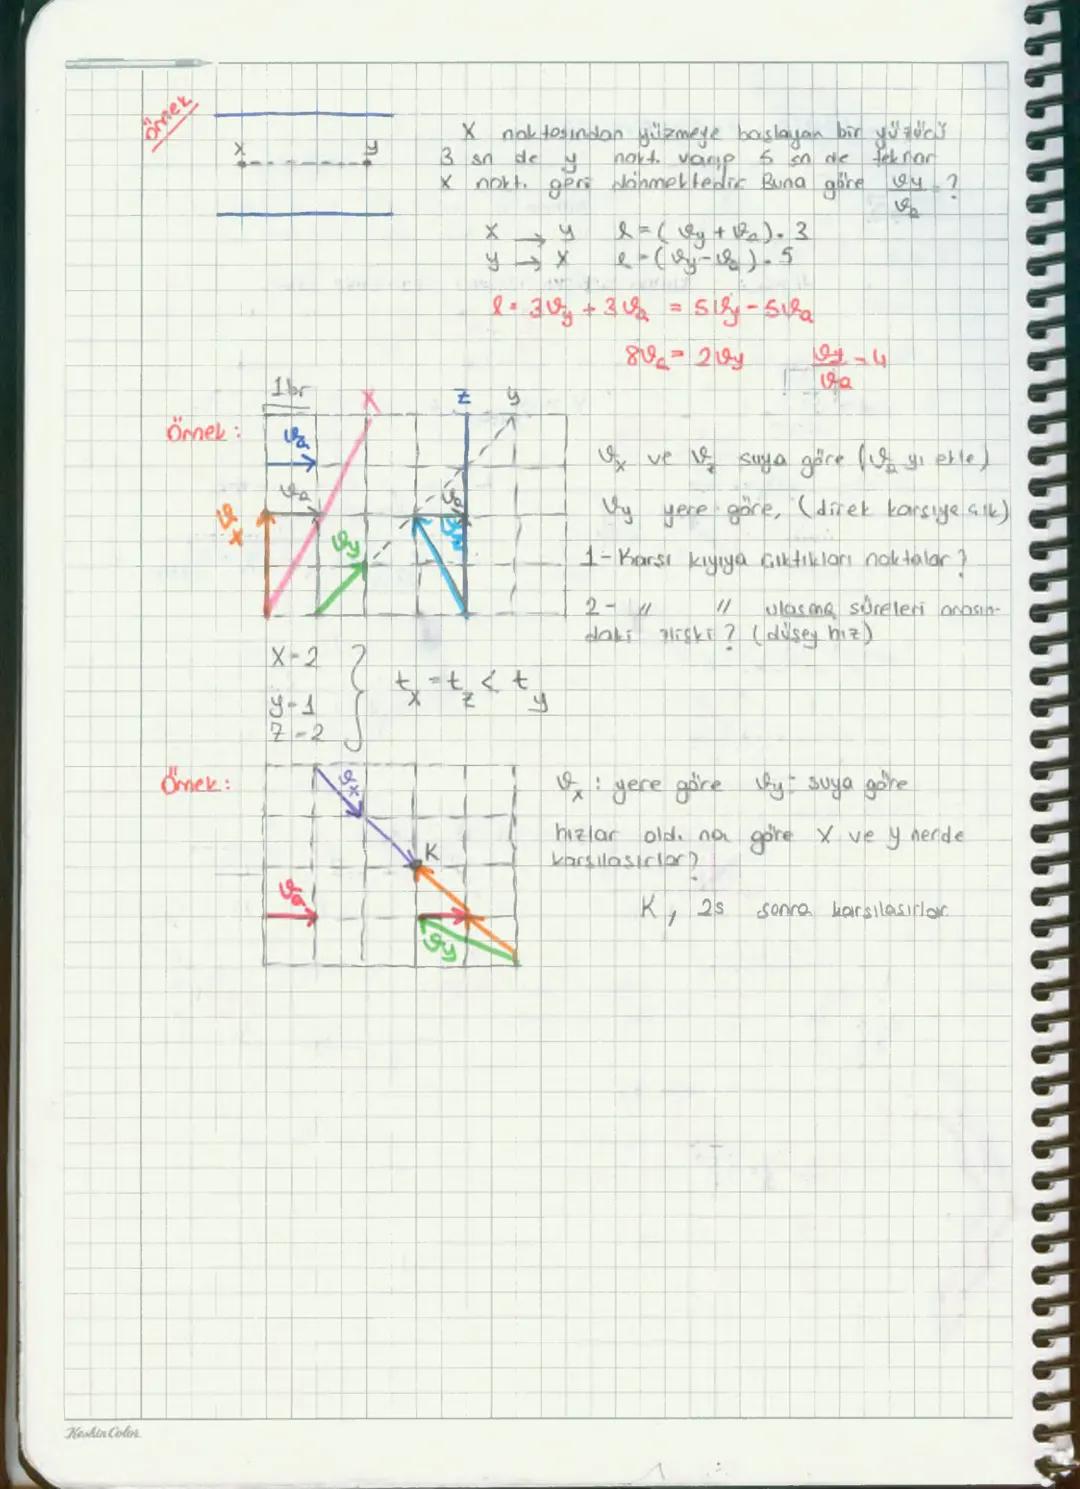 Örnek
X noktasından yüzmeye başlayan bir yüzücü
3 sn de y nokt. varıp 5 sn de tekrar
X nokt. geri dönmektedir. Buna göre ϑy/ϑa = ?
x y
x → y l = (ϑy + ϑa). 3
y → x l = (ϑy - ϑa). 5
l = 3ϑy + 3ϑa = 5ϑy - 5ϑa
8ϑa = 2ϑy ϑy/ϑa = 4
Örnek :
1br
X Z y
ϑa
ϑa ϑa
ϑx ϑy ϑz
ϑx ve ϑz suya göre (ϑa yı ekle)
ϑy yere göre, (direk karşıya çık)
1- Karşı kıyıya çıktıkları noktalar ?
2- " " ulaşma süreleri arasın-
daki ilişki ? (düşey hız)
X-2
y-1
Z-2
tx = tz < ty
Örnek :
ϑx
K
ϑa
ϑy
ϑx : yere göre ϑy : suya göre
hızlar old. na göre X ve y nerde
karşılaşırlar?
K, 2s sonra karşılaşırlar.
KeskinColor